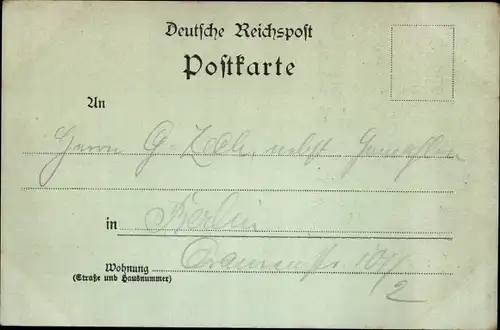 Deutsche Reichspost
Postkarte
An
Herrn G. nebst
in Berlin
Wohnung
(Straße und Hausnummer)